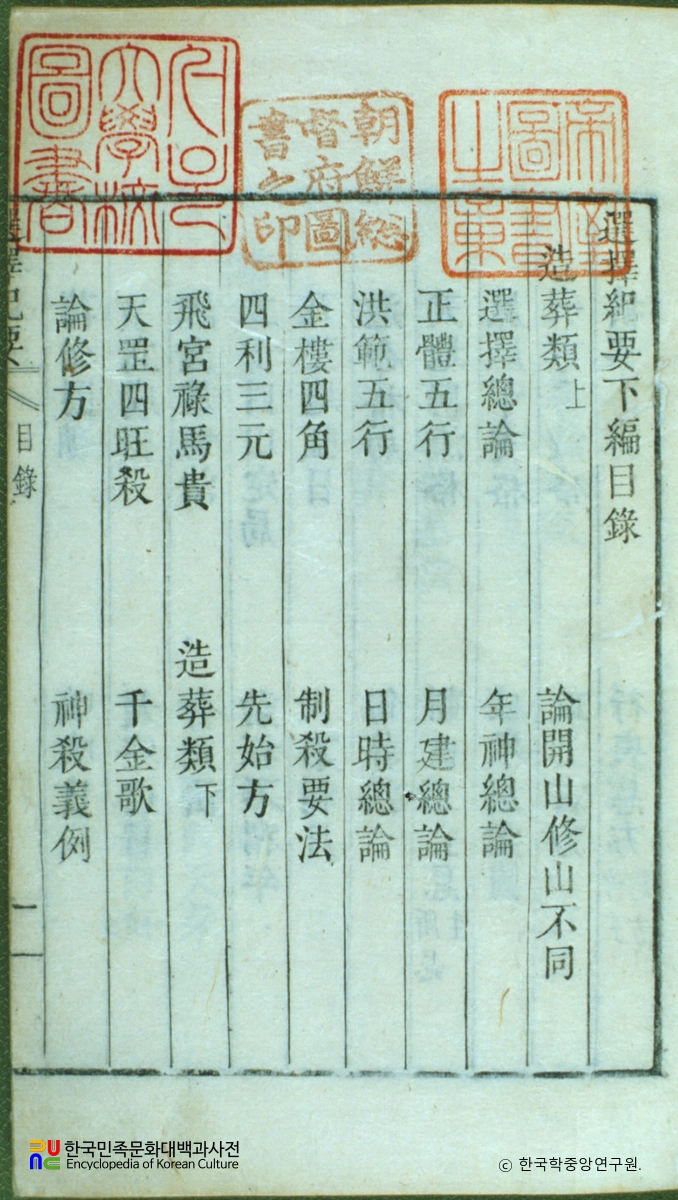 選擇紀要下編目錄
造葬類上　論開山修山不同
選擇總論　年神總論
正體五行　月建總論
洪範五行　日時總論
金樓四角　制殺要法
四利三元　先始方
飛宮祿馬貴　造葬類下
天罡四旺殺　千金歌
論修方　神殺義例
選擇紀要　目錄　一
帝室
圖書
之章
朝鮮總
督府圖
書之印
서울
大學校
圖書
한국민족문화대백과사전
Encyclopedia of Korean Culture
ⓒ 한국학중앙연구원.